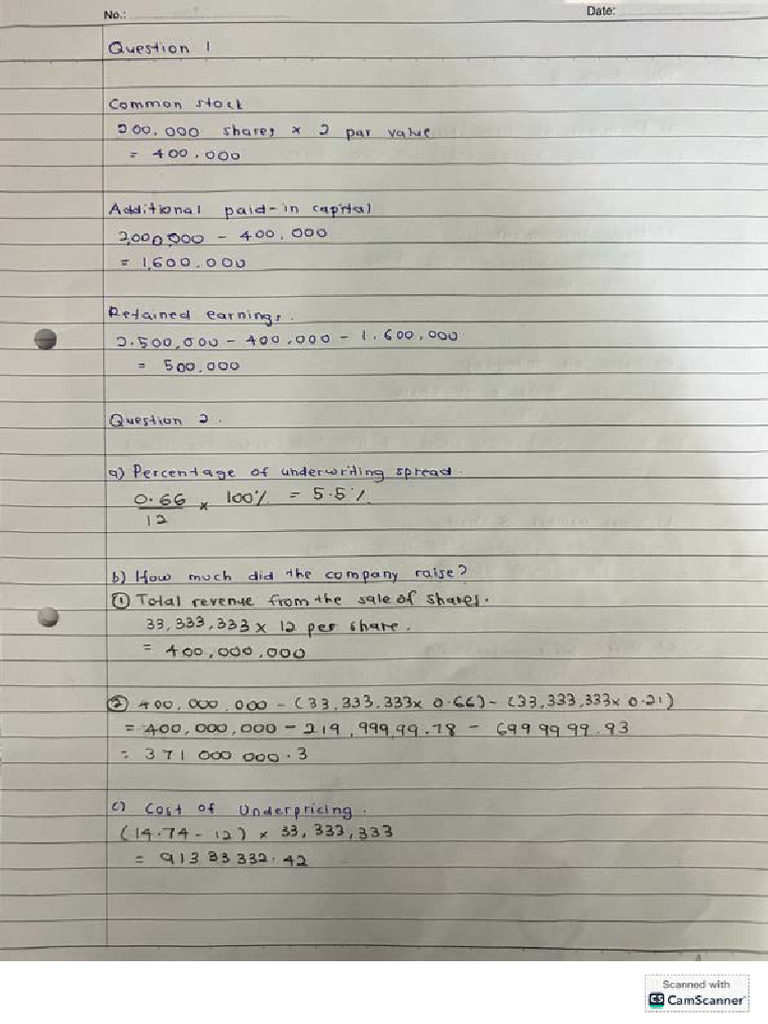 No.:
Date:
Question 1
Common stock
200.000 shares x 2 par value
= 400.000
Additional paid-in capital
2,000,000 - 400.000
= 1,600.000
Retained earnings.
2.500,000 - 400.000 - 1.600,000
= 500.000
Question 2.
a) Percentage of underwriting spread.
0.66 x 100% = 5.5%
12
b) How much did the company raise?
① Total revenue from the sale of shares.
33,333,333 x 12 per share.
= 400,000,000
② 400,000,000 - (33,333,333x 0.66) - (33,333,333x 0.21)
= 400,000,000 - 219,999,99.78 - 699 99 99.93
= 371 000 000.3
c) Cost of Underpricing.
(14.74 - 12) x 33,333,333
= 913 33 332.42
Scanned with
CS CamScanner